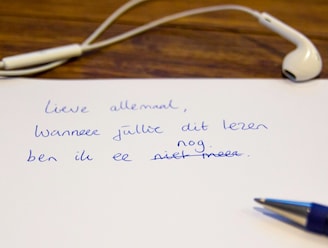 Lieve allemaal,
Wanneer jullie dit lezen
nog
ben ik er niet meer.